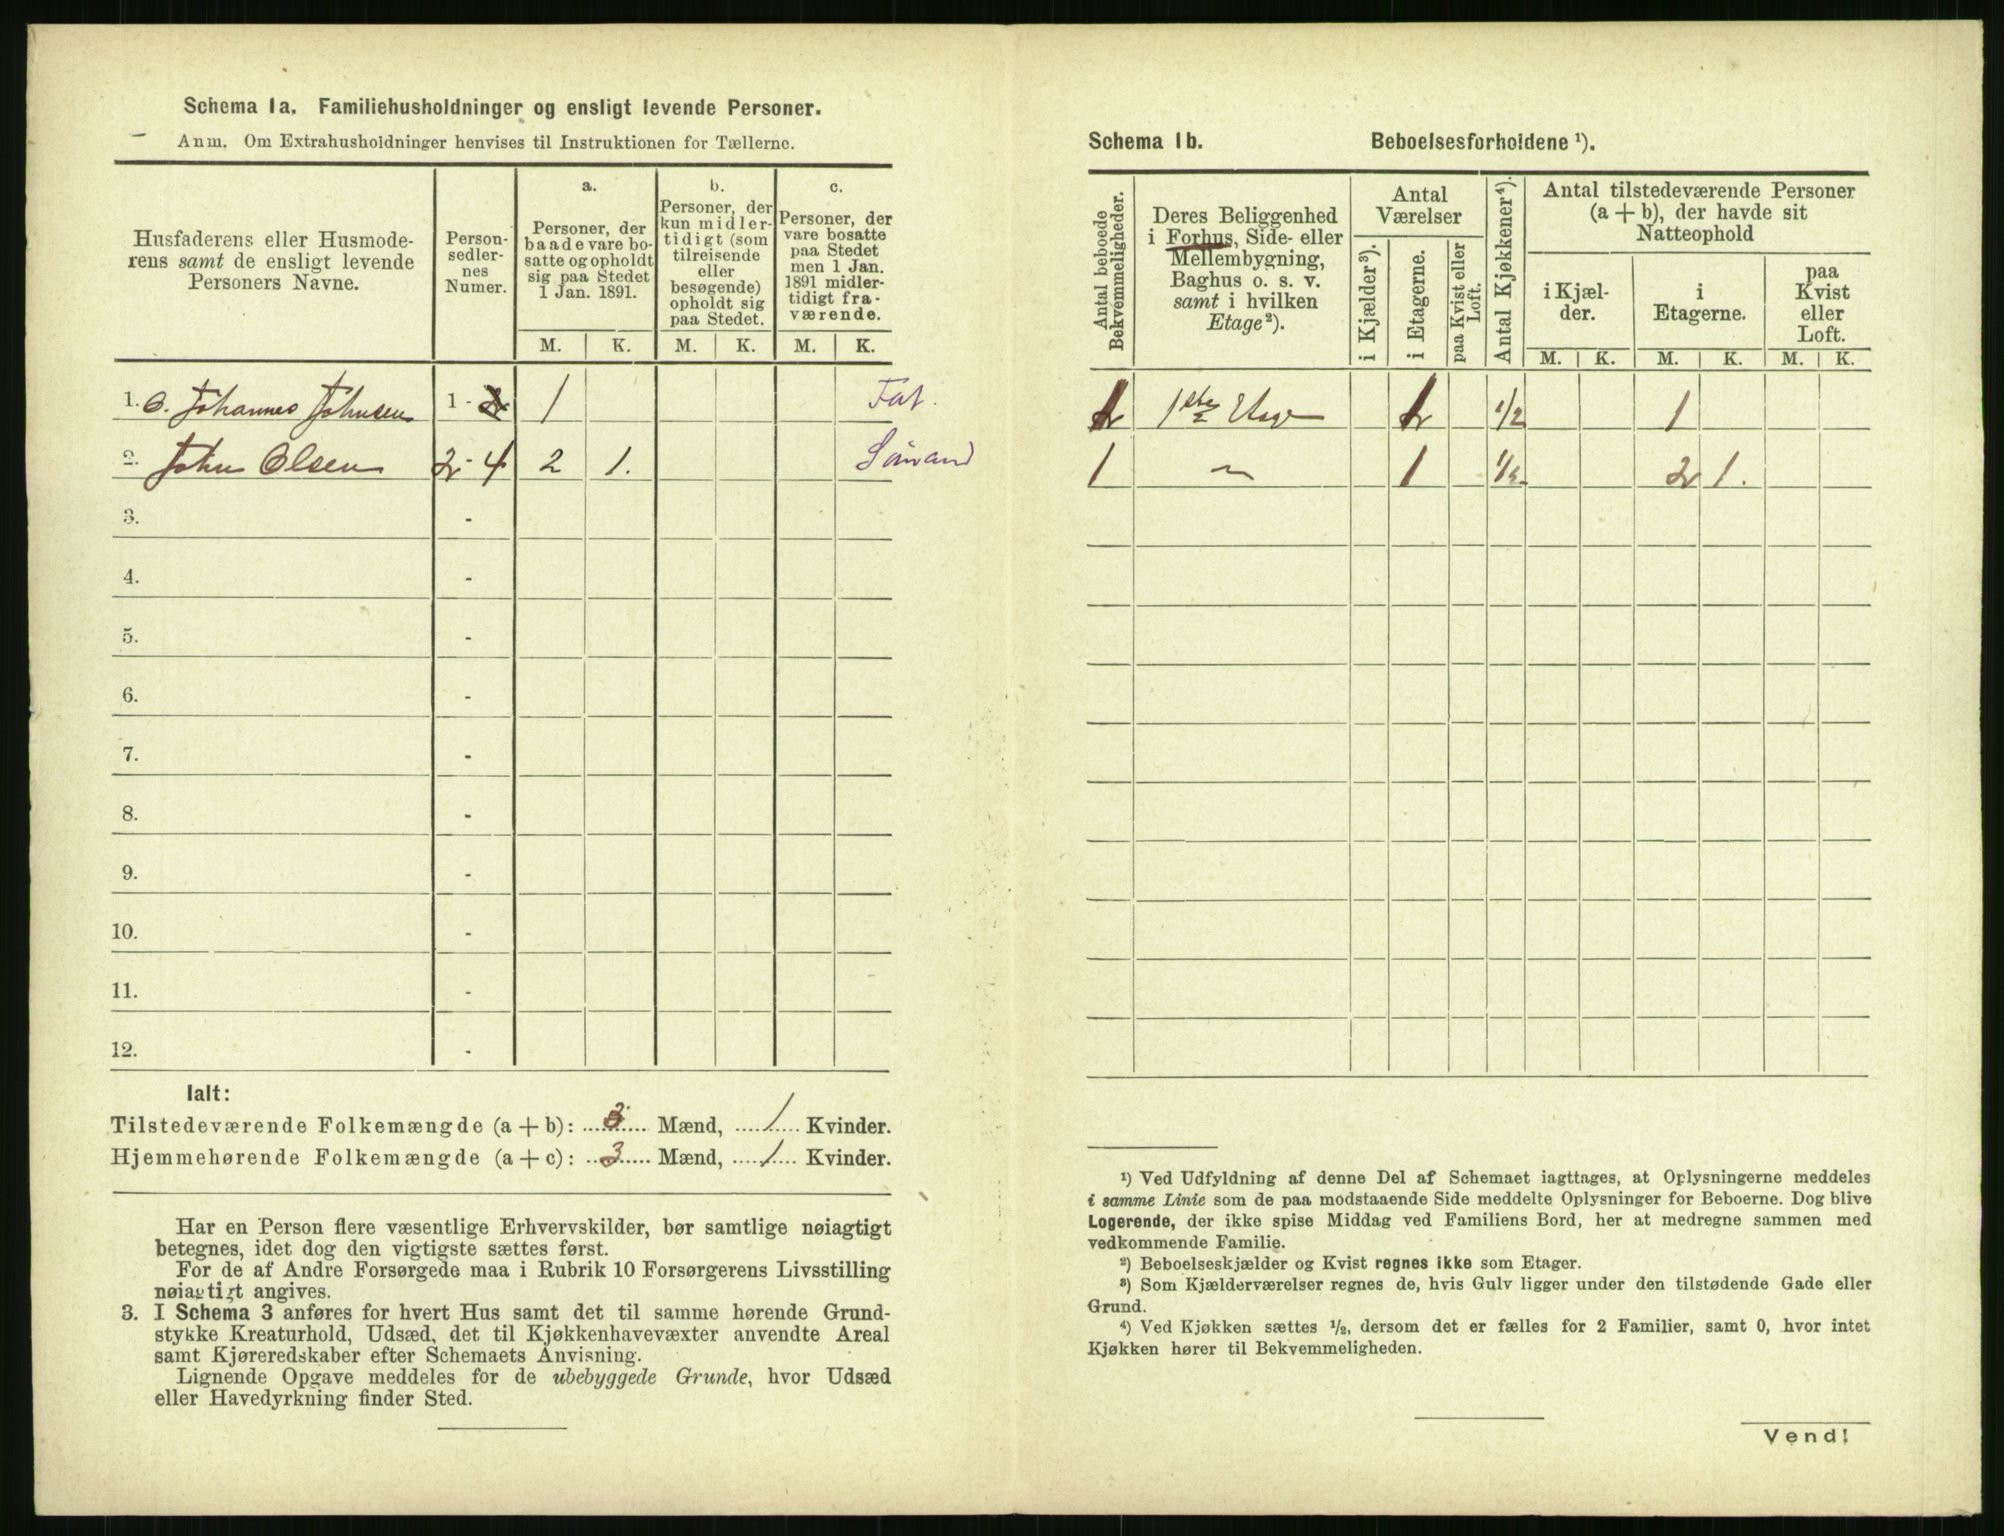 Schema 1a. Familiehusholdninger og ensligt levende Personer.
Anm. Om Extrahusholdninger henvises til Instruktionen for Tællerne.
Husfaderens eller Husmoderens samt de ensligt levende Personers Navne.
Person-
sedler-
nes
Numer.
a.
Personer, der
baade vare bo-
satte og opholdt
sig paa Stedet
1 Jan. 1891.
b.
Personer, der
kun midler-
tidigt (som
tilreisende
eller
besøgende)
opholdt sig
paa Stedet.
c.
Personer, der
vare bosatte
paa Stedet
men 1 Jan.
1891 midler-
tidigt fra-
værende.
M. K. M. K. M. K.
1. O. Johannes Johnsen 1 - 1 Fat.
2. John Olsen 2 - 4 2 1.
3. -
4. -
5. -
6. -
7. -
8. -
9. -
10. -
11. -
12. -
Ialt:
Tilstedeværende Folkemængde (a + b): 3 Mænd, 1 Kvinder.
Hjemmehørende Folkemængde (a + c): 3 Mænd, 1 Kvinder.
Har en Person flere væsentlige Erhvervskilder, bør samtlige nøiagtigt
betegnes, idet dog den vigtigste sættes først.
For de af Andre Forsørgede maa i Rubrik 10 Forsørgerens Livsstilling
nøiagtigt angives.
3. I Schema 3 anføres for hvert Hus samt det til samme hørende Grund-
stykke Kreaturhold, Udsæd, det til Kjøkkenhavevæxter anvendte Areal
samt Kjøreredskaber efter Schemaets Anvisning.
Lignende Opgave meddeles for de ubebyggede Grunde, hvor Udsæd
eller Havedyrkning finder Sted.
Schema 1b. Beboelsesforholdene ¹).
Antal beboede
Bekvemmeligheder.
Deres Beliggenhed
i Forhus, Side- eller
Mellembygning,
Baghus o. s. v.
samt i hvilken
Etage²).
Antal
Værelser
i Kjælder³).
i Etagerne.
paa Kvist eller
Loft.
Antal Kjøkkener⁴).
Antal tilstedeværende Personer
(a + b), der havde sit
Natteophold
i Kjæl-
der.
i
Etagerne.
paa
Kvist
eller
Loft.
M. K. M. K. M. K.
1ste Etage 1/2 1
1 " 1 1/2 2 1.
¹) Ved Udfyldning af denne Del af Schemaet iagttages, at Oplysningerne meddeles
i samme Linie som de paa modstaaende Side meddelte Oplysninger for Beboerne. Dog blive
Logerende, der ikke spise Middag ved Familiens Bord, her at medregne sammen med
vedkommende Familie.
²) Beboelseskjælder og Kvist regnes ikke som Etager.
³) Som Kjælderværelser regnes de, hvis Gulv ligger under den tilstødende Gade eller
Grund.
⁴) Ved Kjøkken sættes ½, dersom det er fælles for 2 Familier, samt 0, hvor intet
Kjøkken hører til Bekvemmeligheden.
Vend!